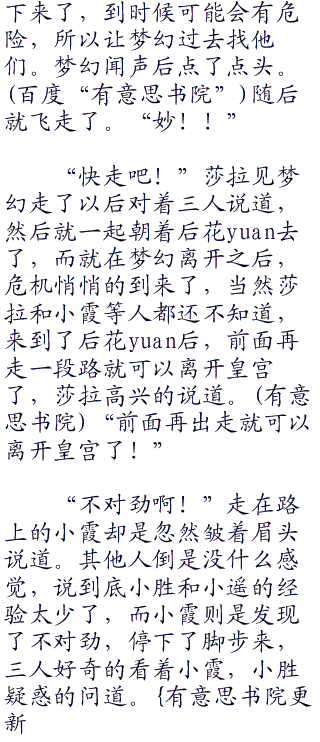 下来了，到时候可能会有危
险，所以让梦幻过去找他
们。梦幻闻声后点了点头。
(百度“有意思书院”)随后
就飞走了。“妙！！”
“快走吧！”莎拉见梦
幻走了以后对着三人说道，
然后就一起朝着后花yuan去
了，而就在梦幻离开之后，
危机悄悄的到来了，当然莎
拉和小霞等人都还不知道，
来到了后花yuan后，前面再
走一段路就可以离开皇宫
了，莎拉高兴的说道。(有意
思书院)“前面再出走就可以
离开皇宫了！”
“不对劲啊！”走在路
上的小霞却是忽然皱着眉头
说道。其他人倒是没什么感
觉，说到底小胜和小遥的经
验太少了，而小霞则是发现
了不对劲，停下了脚步来，
三人好奇的看着小霞，小胜
疑惑的问道。{有意思书院更
新